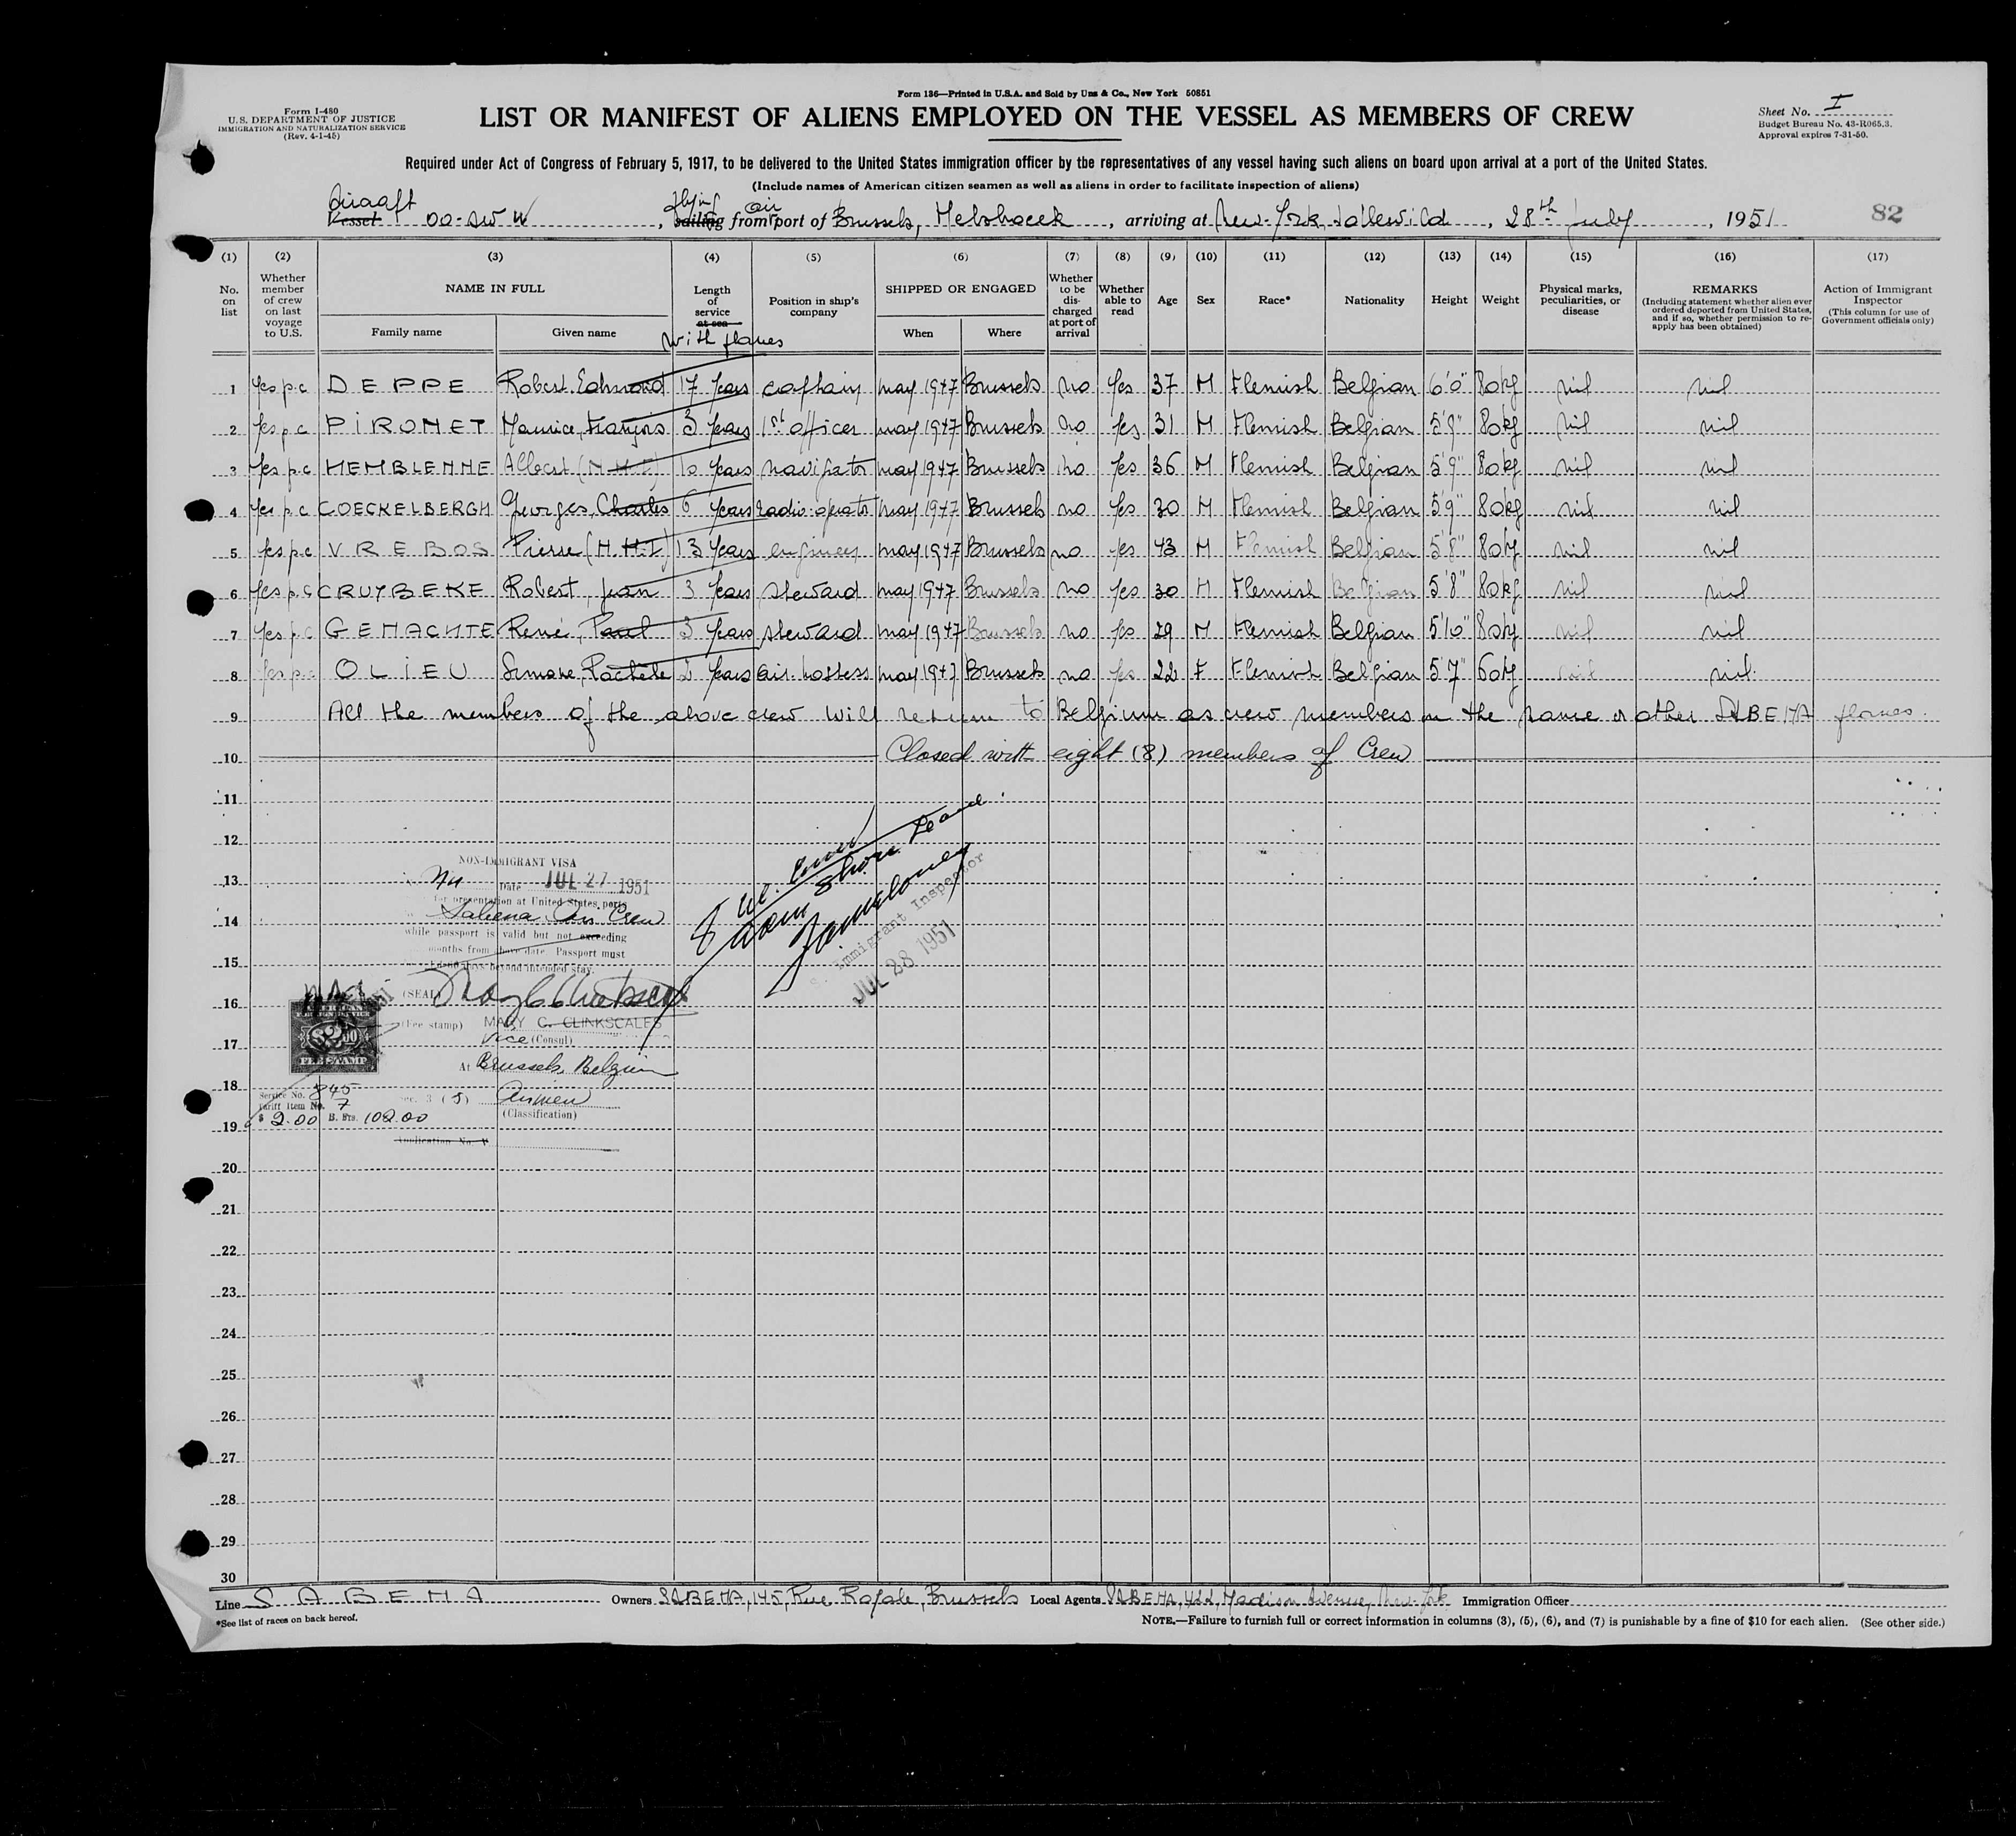 Form 136—Printed in U.S.A. and Sold by Unz & Co., New York 50851
Form I-480
U.S. DEPARTMENT OF JUSTICE
IMMIGRATION AND NATURALIZATION SERVICE
(Rev. 4-1-45)
LIST OR MANIFEST OF ALIENS EMPLOYED ON THE VESSEL AS MEMBERS OF CREW
Sheet No. I
Budget Bureau No. 43-R065.3.
Approval expires 7-31-50.
Required under Act of Congress of February 5, 1917, to be delivered to the United States immigration officer by the representatives of any vessel having such aliens on board upon arrival at a port of the United States.
(Include names of American citizen seamen as well as aliens in order to facilitate inspection of aliens)
Aircraft flying air
Vessel OO-SDW, sailing from port of Brussels, Melsbroeck, arriving at New-York, Idlewild, 28th July, 1951 82
(1) (2) (3) (4) (5) (6) (7) (8) (9) (10) (11) (12) (13) (14) (15) (16) (17)
No. on list
Whether member of crew on last voyage to U.S.
NAME IN FULL
Family name
Given name
Length of service at sea
with planes
Position in ship's company
SHIPPED OR ENGAGED
When
Where
Whether to be discharged at port of arrival
Whether able to read
Age
Sex
Race*
Nationality
Height
Weight
Physical marks, peculiarities, or disease
REMARKS
(Including statement whether alien ever ordered deported from United States, and if so, whether permission to re-apply has been obtained)
Action of Immigrant Inspector
(This column for use of Government officials only)
1 Yes p.c DEPPE Robert Edmond 17 Years captain may 1947 Brussels no Yes 37 M Flemish Belgian 6'0" 80kg nil nil
2 Yes p.c PIRONET Maurice, François 3 Years 1st officer may 1947 Brussels no Yes 31 M Flemish Belgian 5'9" 80kg nil nil
3 Yes p.c HEMBLENNE Albert (N.M.I) 10 Years navigator may 1947 Brussels no Yes 36 M Flemish Belgian 5'9" 80kg nil nil
4 Yes p.c COECKELBERGH Georges, Charles 6 Years radio-operator may 1947 Brussels no Yes 30 M Flemish Belgian 5'9" 80kg nil nil
5 Yes p.c VREBOS Pierre (N.M.I) 13 Years engineer may 1947 Brussels no Yes 43 M Flemish Belgian 5'8" 80kg nil nil
6 Yes p.c CRUYBEKE Robert, Jean 3 Years steward may 1947 Brussels no Yes 30 M Flemish Belgian 5'8" 80kg nil nil
7 Yes p.c GEMACHTE René, Paul 3 Years steward may 1947 Brussels no Yes 29 M Flemish Belgian 5'10" 80kg nil nil
8 Yes p.c OLIEU Simone, Rachèle 2 Years air-hostess may 1947 Brussels no Yes 22 F Flemish Belgian 5'7" 60kg nil nil
9 All the members of the above crew will return to Belgium as crew members on the same or other SABENA planes
10 Closed with eight (8) members of Crew
11
12
13
14
15
16
17
18
19
20
21
22
23
24
25
26
27
28
29
30
NON-IMMIGRANT VISA
Date JUL 27 1951
for presentation at United States ports
Sabena Air Crew
while passport is valid but not exceeding
months from above date. Passport must
beyond intended stay.
(SEAL) Mary C. Clinkscales
(Fee stamp) MARY C. CLINKSCALES
Vice (Consul)
At Brussels, Belgium
Service No. 845
Tariff Item No. 7
Sec. 3 (5) Airmen
(Classification)
$ 2.00 B. Frs. 102.00
Application No. V
AMERICAN
FOREIGN SERVICE
FEE STAMP
8
shore leave
Immigrant Inspector
JUL 28 1951
Line SABENA Owners SABENA, 145, Rue Royale, Brussels Local Agents SABENA, 422, Madison Avenue, New-York Immigration Officer
*See list of races on back hereof.
NOTE.—Failure to furnish full or correct information in columns (3), (5), (6), and (7) is punishable by a fine of $10 for each alien. (See other side.)